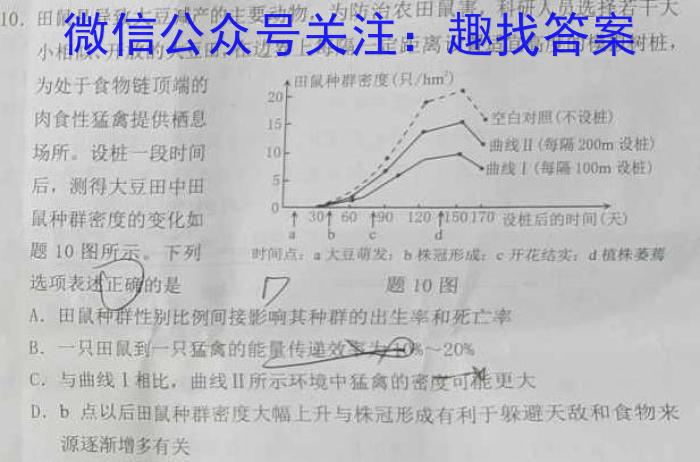 10. 田鼠是导致大豆减产的主要动物。为防治农田鼠害，科研人员选择若干大
小相似、开放的大豆田，在边界上每隔一定距离
树桩，
微信公众号关注：趣找答案
为处于食物链顶端的
肉食性猛禽提供栖息
场所。设桩一段时间
后，测得大豆田中田
鼠种群密度的变化如
题 10 图所示。下列
选项表述正确的是
田鼠种群密度(只/hm²)
20
15
10
5
0
30 60 90 120 150 170 设桩后的时间(天)
a b c d
空白对照(不设桩)
曲线Ⅱ(每隔 200m 设桩)
曲线Ⅰ(每隔 100m 设桩)
时间点：a 大豆萌发；b 株冠形成；c 开花结实；d 植株萎蔫
题 10 图
A. 田鼠种群性别比例间接影响其种群的出生率和死亡率
B. 一只田鼠到一只猛禽的能量传递效率为10%～20%
C. 与曲线Ⅰ相比，曲线Ⅱ所示环境中猛禽的密度可能更大
D. b 点以后田鼠种群密度大幅上升与株冠形成有利于躲避天敌和食物来
源逐渐增多有关